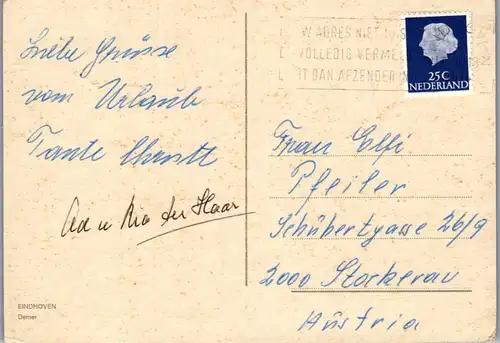 Liebe Grüsse
vom Urlaub
Tante
Ad u Ria ter Haar
EINDHOVEN
Demer
W ADRES NIET
VOLLEDIG VERME
DAN AFZENDER
25C
NEDERLAND
Frau Elfi
Pfeiler
Schübertgasse 26/9
2000 Stockerau
Austria